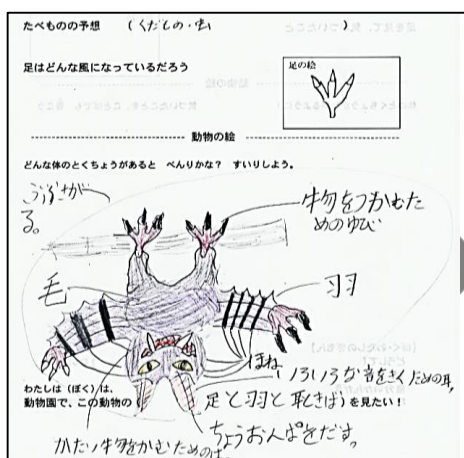 たべものの予想 （くだもの・虫）
足はどんな風になっているだろう
足の絵
動物の絵
どんな体のとくちょうがあると べんりかな？ すいりしよう。
ぶらさがる。
物をつかむためのゆび
毛
羽
ほね
いろいろな音をきくための耳
わたしは（ぼく）は、
動物園で、この動物の（足と羽と耳ときば）を見たい！
ちょうおんぱをだす。
かたい物をかむためのは。